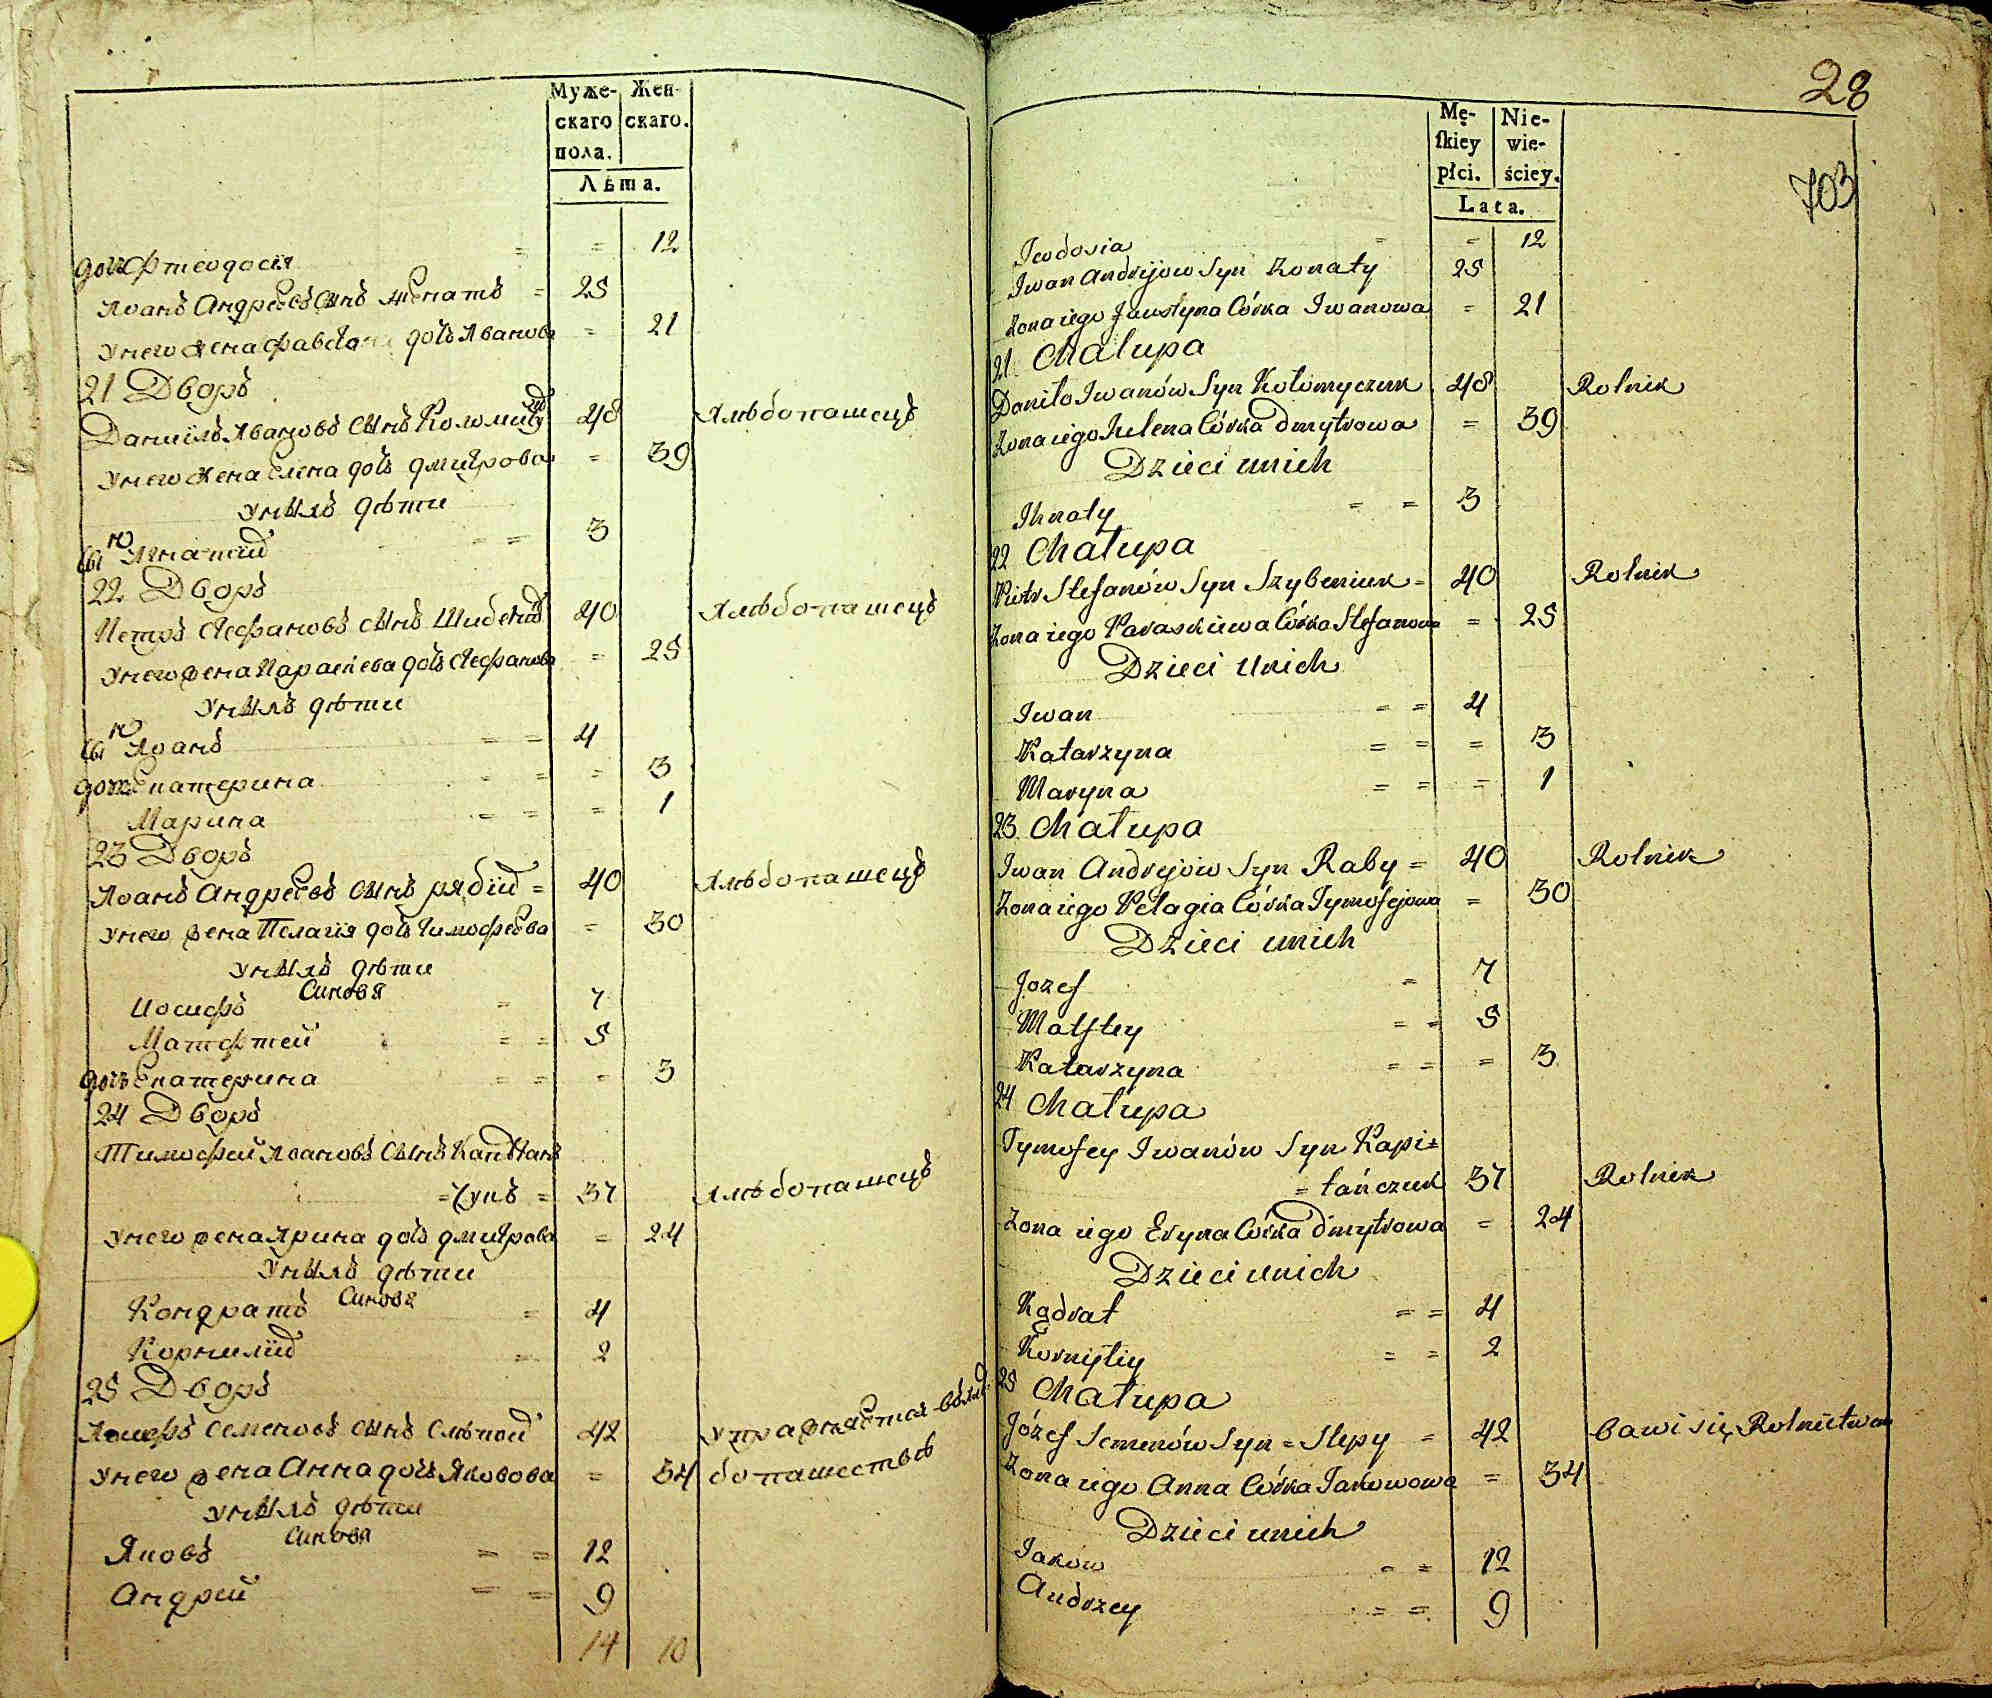 Муже-
скаго
пола.
Жен-
скаго.
Лѣта.
дочь Фтеодосія = = 12
Иоанъ Андреевъ сынъ женатъ = 25
У него жена Фавстина дочь Иванова = 21
21 Дворъ
Даниилъ Ивановъ сынъ Коломийчу 48 Хлѣбопашецъ
У него жена Елена дочь Дмитрова = 39
У нихъ дѣти
сынъ Игнатій = = 3
22 Дворъ
Петръ Стефановъ сынъ 40 Хлѣбопашецъ
У него жена Параскева дочь Стефанова = 25
У нихъ дѣти
сынъ Иоанъ = = 4
дочь Екатерина = = = 3
Марина = = = 1
23 Дворъ
Иоанъ Андреевъ сынъ рябій = 40 Хлѣбопашецъ
У него жена Пелагія дочь Тимофеева = 30
У нихъ дѣти
Синовя
Иосифъ = 7
Матфтей = = 5
дочь Екатерина = = = 3
24 Дворъ
Тимофей Иоановъ сынъ Капитан
=чукъ = 37 Хлѣбопашецъ
У него жена Ярина дочь Дмитрова = 24
У нихъ дѣти
Синовя
Кондратъ = 4
Корнилій = 2
25 Дворъ
Иосифъ Семеновъ сынъ Слѣпой 42 упражняется въ хлѣ
У него жена Анна дочь Яковова = 34 бопашествѣ
У нихъ дѣти
Синовя
Яковъ = = 12
Андрій = = 9
14 10
28
703
Mę-
ſkiey
płci.
Nie-
wie-
ściey.
Lata.
Teodosia = = 12
Iwan Andryiow Syn Zonaty 25
Zona iego Faustyna Córka Iwanowa = 21
21 Chałupa
Daniło Iwanów Syn Kołomyczuk 48 Rolnik
Zona iego Julena Córka Dmytrowa = 39
Dzieci unich
Ihnaty = = 3
22 Chałupa
Piotr Stefanów Syn Szybeniuk = 40 Rolnik
Zona iego Paraskiewa Córka Stefanowa = 25
Dzieci unich
Iwan = = 4
Katarzyna = = = 3
Maryna = = = 1
23 Chałupa
Iwan Andryiów Syn Raby = 40 Rolnik
Zona iego Pelagia Córka Tymofejowa = 30
Dzieci unich
Jozef = 7
Matftey = = 5
Katarzyna = = = 3
24 Chałupa
Tymofey Iwanów Syn Kapi=
=tańczuk 37 Rolnik
Zona iego Eryna Córka Dmytrowa = 24
Dzieci unich
Kądrat = = 4
Korniłiy = = 2
25 Chałupa
Józef Semenów Syn = Slepy = 42 bawi się Rolnictwem
Zona iego Anna Córka Jakowowa = 34
Dzieci unich
Jaków = = 12
Andrzey = = 9